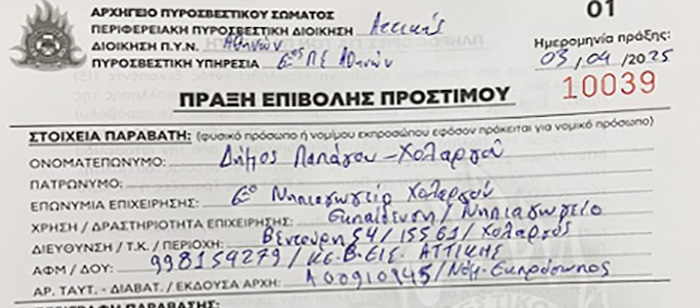 ΑΡΧΗΓΕΙΟ ΠΥΡΟΣΒΕΣΤΙΚΟΥ ΣΩΜΑΤΟΣ
ΠΕΡΙΦΕΡΕΙΑΚΗ ΠΥΡΟΣΒΕΣΤΙΚΗ ΔΙΟΙΚΗΣΗ Αττικής
ΔΙΟΙΚΗΣΗ Π.Υ.Ν. Αθηνών
ΠΥΡΟΣΒΕΣΤΙΚΗ ΥΠΗΡΕΣΙΑ 6ος ΠΣ Αθηνών
01
Ημερομηνία πράξης:
03/04/2025
10039
ΠΡΑΞΗ ΕΠΙΒΟΛΗΣ ΠΡΟΣΤΙΜΟΥ
ΣΤΟΙΧΕΙΑ ΠΑΡΑΒΑΤΗ: (φυσικό πρόσωπο ή νομίμου εκπροσώπου εφόσον πρόκειται για νομικό πρόσωπο)
ΟΝΟΜΑΤΕΠΩΝΥΜΟ: Δήμος Παπάγου-Χολαργού
ΠΑΤΡΩΝΥΜΟ:
ΕΠΩΝΥΜΙΑ ΕΠΙΧΕΙΡΗΣΗΣ: 6ο Νηπιαγωγείο Χολαργού
ΧΡΗΣΗ / ΔΡΑΣΤΗΡΙΟΤΗΤΑ ΕΠΙΧΕΙΡΗΣΗΣ: Εκπαίδευση / Νηπιαγωγείο
ΔΙΕΥΘΥΝΣΗ / Τ.Κ. / ΠΕΡΙΟΧΗ: Βεντούρη 54 / 15561 / Χολαργός
ΑΦΜ / ΔΟΥ: 998159279 / ΚΕ.Β.ΕΙΣ. ΑΤΤΙΚΗΣ
ΑΡ. ΤΑΥΤ. - ΔΙΑΒΑΤ. / ΕΚΔΟΥΣΑ ΑΡΧΗ: Α00910945 / Νόμ. Εκπρόσωπος